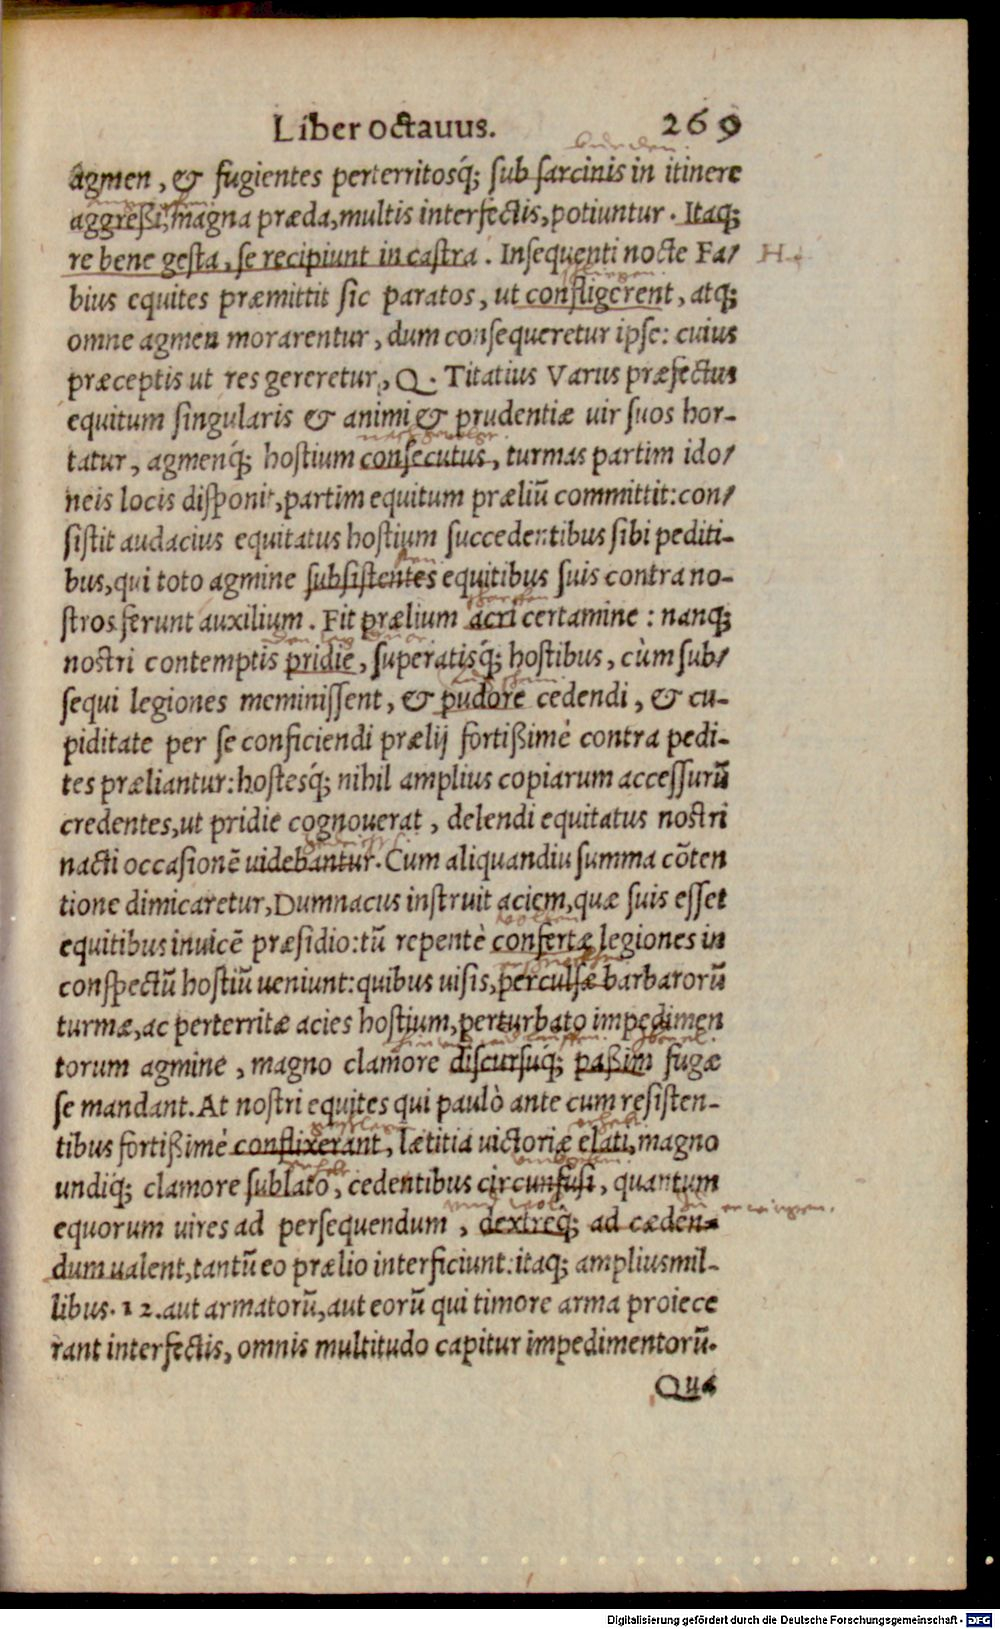 Liber octauus. 269
agmen, & fugientes perterritosq́; sub sarcinis in itinere
aggreßi, magna præda, multis interfectis, potiuntur. Itaq;
re bene gesta, se recipiunt in castra. Insequenti nocte Fa/
bius equites præmittit sic paratos, ut confligerent, atq;
omne agmen morarentur, dum consequeretur ipse: cuius
præceptis ut res gereretur, Q. Titatius Varus præfectus
equitum singularis & animi & prudentiæ uir suos hor-
tatur, agmenq́; hostium consecutus, turmas partim ido/
neis locis disponit, partim equitum præliū committit: con/
sistit audacius equitatus hostium succedentibus sibi pediti-
bus, qui toto agmine subsistentes equitibus suis contra no-
stros ferunt auxilium. Fit prælium acri certamine: nanq;
nostri contemptis pridie, superatisq́; hostibus, cùm sub/
sequi legiones meminissent, & pudore cedendi, & cu-
piditate per se conficiendi prælij fortißimè contra pedi-
tes præliantur: hostesq́; nihil amplius copiarum accessurū
credentes, ut pridie cognouerat, delendi equitatus nostri
nacti occasionē uidebantur. Cum aliquandiu summa cōten
tione dimicaretur, Dumnacus instruit aciem, quæ suis esset
equitibus inuicē præsidio: tū repentè confertæ legiones in
conspectū hostiū ueniunt: quibus uisis, perculsæ barbarorū
turmæ, ac perterritæ acies hostium, perturbato impedimen
torum agmine, magno clamore discursuq́; paßim fugæ
se mandant. At nostri equites qui paulò ante cum resisten-
tibus fortißimè conflixerant, lætitia uictoriæ elati, magno
undiq́; clamore sublato, cedentibus circunfusi, quantum
equorum uires ad persequendum, dextreq́; ad cæden-
dum ualent, tantū eo prælio interficiunt: itaq; amplius mil-
libus. 12. aut armatorū, aut eorū qui timore arma proiece
rant interfectis, omnis multitudo capitur impedimentorū.
Qua
Digitalisierung gefördert durch die Deutsche Forschungsgemeinschaft - DFG